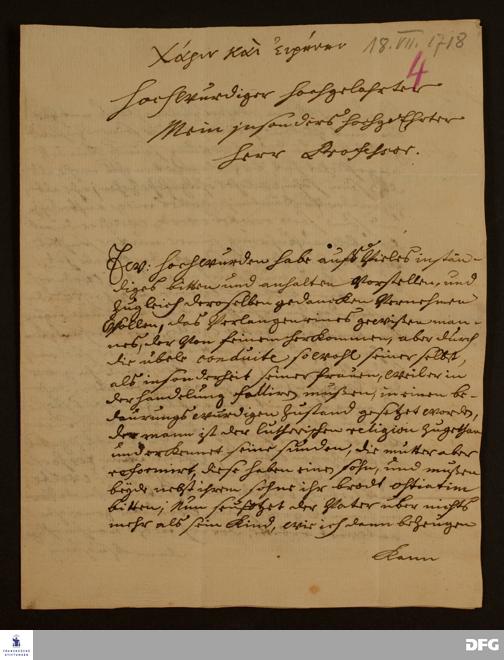 Χάριν καὶ Ἐιρήνην 18. VII. 1718
4
Hochwürdiger Hochgelahrter
Mein insonders Hochgeehrter
Herr Professor.
Ew: Hochwürden habe auff Vieles instän-
diges bitten und anhalten Vorstellen, und
Zugleich deroselben gedancken Vernehmen
wollen, das Verlangen eines gewißen man-
nes, der Von feinem herkommen, aber durch
die übele conduite sowohl seiner selbst,
als insonderheit seiner frauen, weil er in
der handelung falliren müßen, in einen be-
daurungs würdigen Zustand gesetzet worden,
der mann ist der lutherischen religion Zugethan
und erkennet seine sünden, die mutter aber
reformirt, diese haben einen sohn, und müßen
beyde nebst ihrem sohne ihr brodt ostiatim
bitten; Nun seufftzet der Vater über nichts
mehr als sein Kind, wie ich dann bezeugen
Kann
FRANCKESCHE STIFTUNGEN
DFG